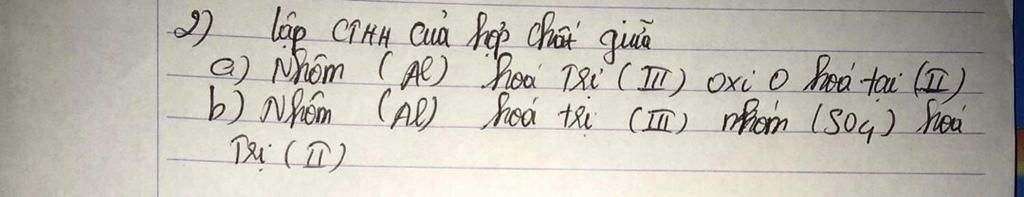 2) lập CTHH của hợp chất giữa
a) Nhôm (Al) hoá Trị (III) oxi O hoá tại (II)
b) Nhôm (Al) hoá trị (III) nhóm (SO4) hoá
Trị (II)